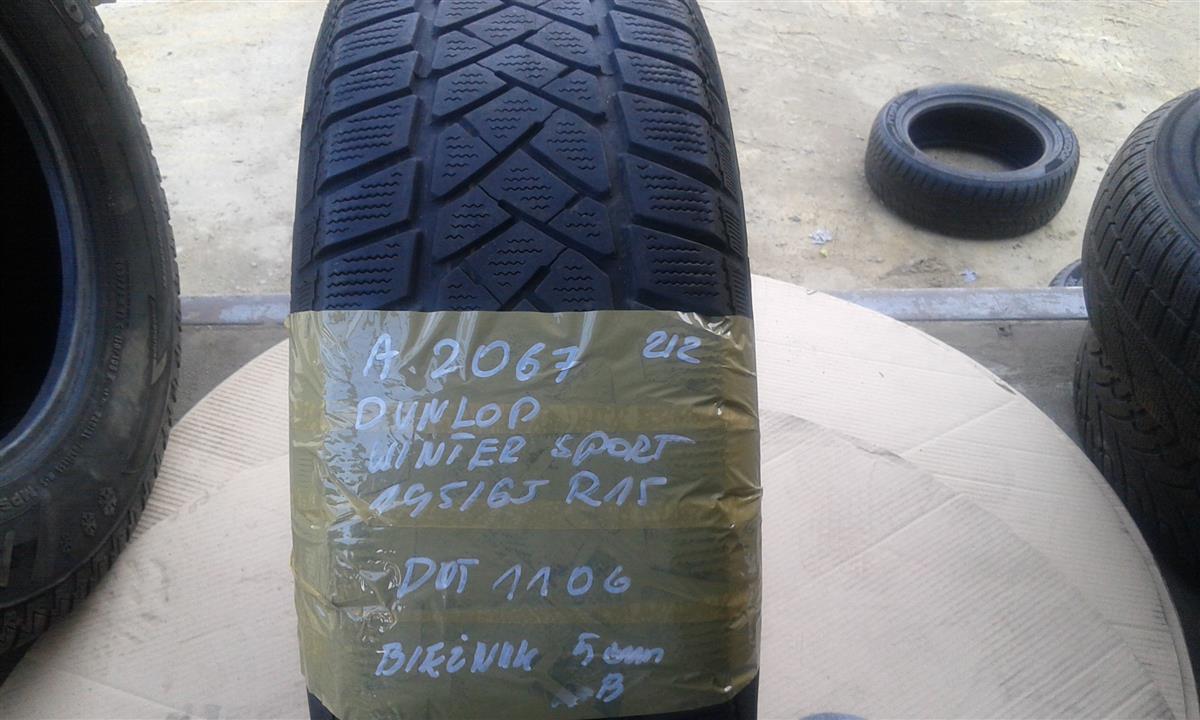 A 2067 212
DUNLOP
WINTER SPORT
195/65 R15
DOT 1106
BIEŻNIK 5 mm
B